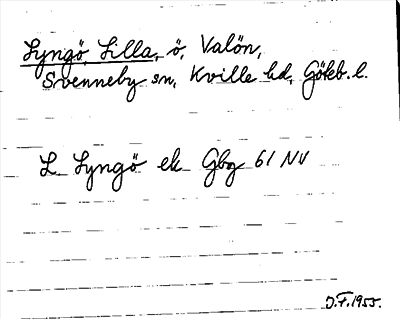 Lyngö, Lilla, ö, Valön,
Svenneby sn, Kville hd, Göteb. l.
L Lyngö ek Gbg 61 NV
J.F. 1955.